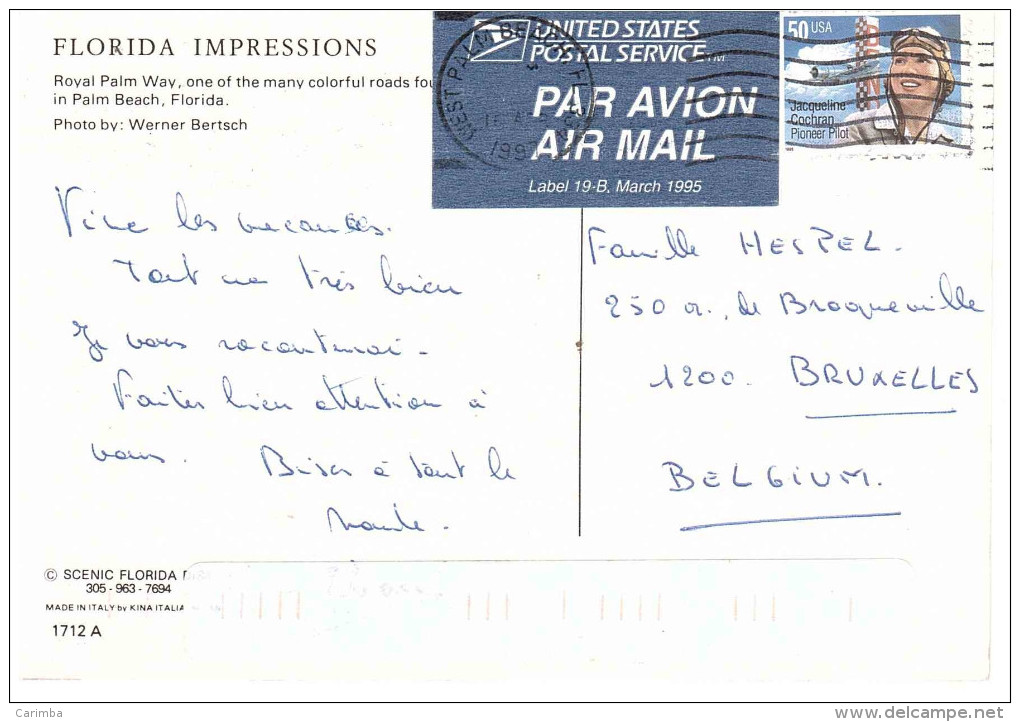 FLORIDA IMPRESSIONS
Royal Palm Way, one of the many colorful roads fou
in Palm Beach, Florida.
Photo by: Werner Bertsch
UNITED STATES
POSTAL SERVICE TM
PAR AVION
AIR MAIL
Label 19-B, March 1995
WEST PALM BEACH FL
199
50 USA
Jacqueline
Cochran
Pioneer Pilot
Vive les vacances.
Tout va très bien
Je vous raconterai.
Faites bien attention à
vous. Bises à tout le
monde.
Famille HESPEL.
250 a., de Broqueville
1200. BRUXELLES
BELGIUM.
© SCENIC FLORIDA
305-963-7694
MADE IN ITALY by KINA ITALIA
1712 A
Carimba
www.delcampe.net